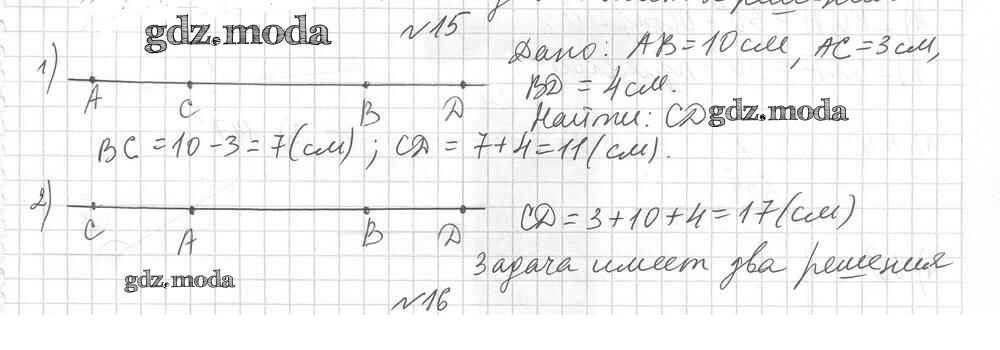 №15
gdz.moda
Дано: AB = 10 см, AC = 3 см,
1)
BD = 4 см.
A C B D
Найти: CD
gdz.moda
BC = 10 - 3 = 7 (см) ; CD = 7 + 4 = 11 (см).
2)
C A B D
CD = 3 + 10 + 4 = 17 (см)
Задача имеет два решения
gdz.moda
№16